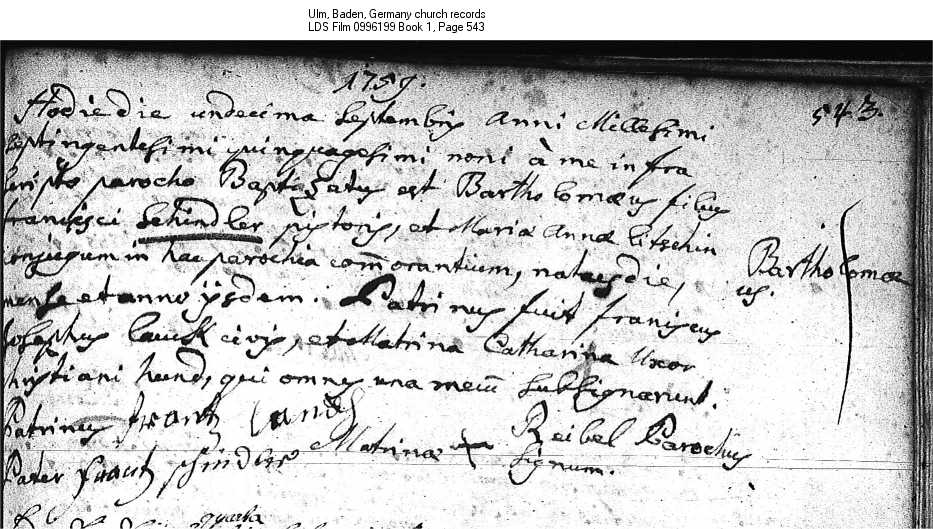 Ulm, Baden, Germany church records
LDS Film 0996199 Book 1, Page 543
1759.
543.
Hodie die undecima Septembris Anni Millesimi
septingentesimi quinquagesimi noni à me infra
scripto parocho Baptizatus est Bartholomæus filius
francisci Schindler pistoris, et Mariæ Annæ litschin
conjugum in hac parochia com̃orantium, natus die,
Bartholomæ
us.
mense et anno ijsdem. Patrinus fuit franciscus
Josephus civis, et Matrina Catharina Uxor
christiani hund, qui omnes una mecũ subsignarunt.
Patrinus frantz
Reibel Parochus
Pater frantz schindler Matrinæ + signum.